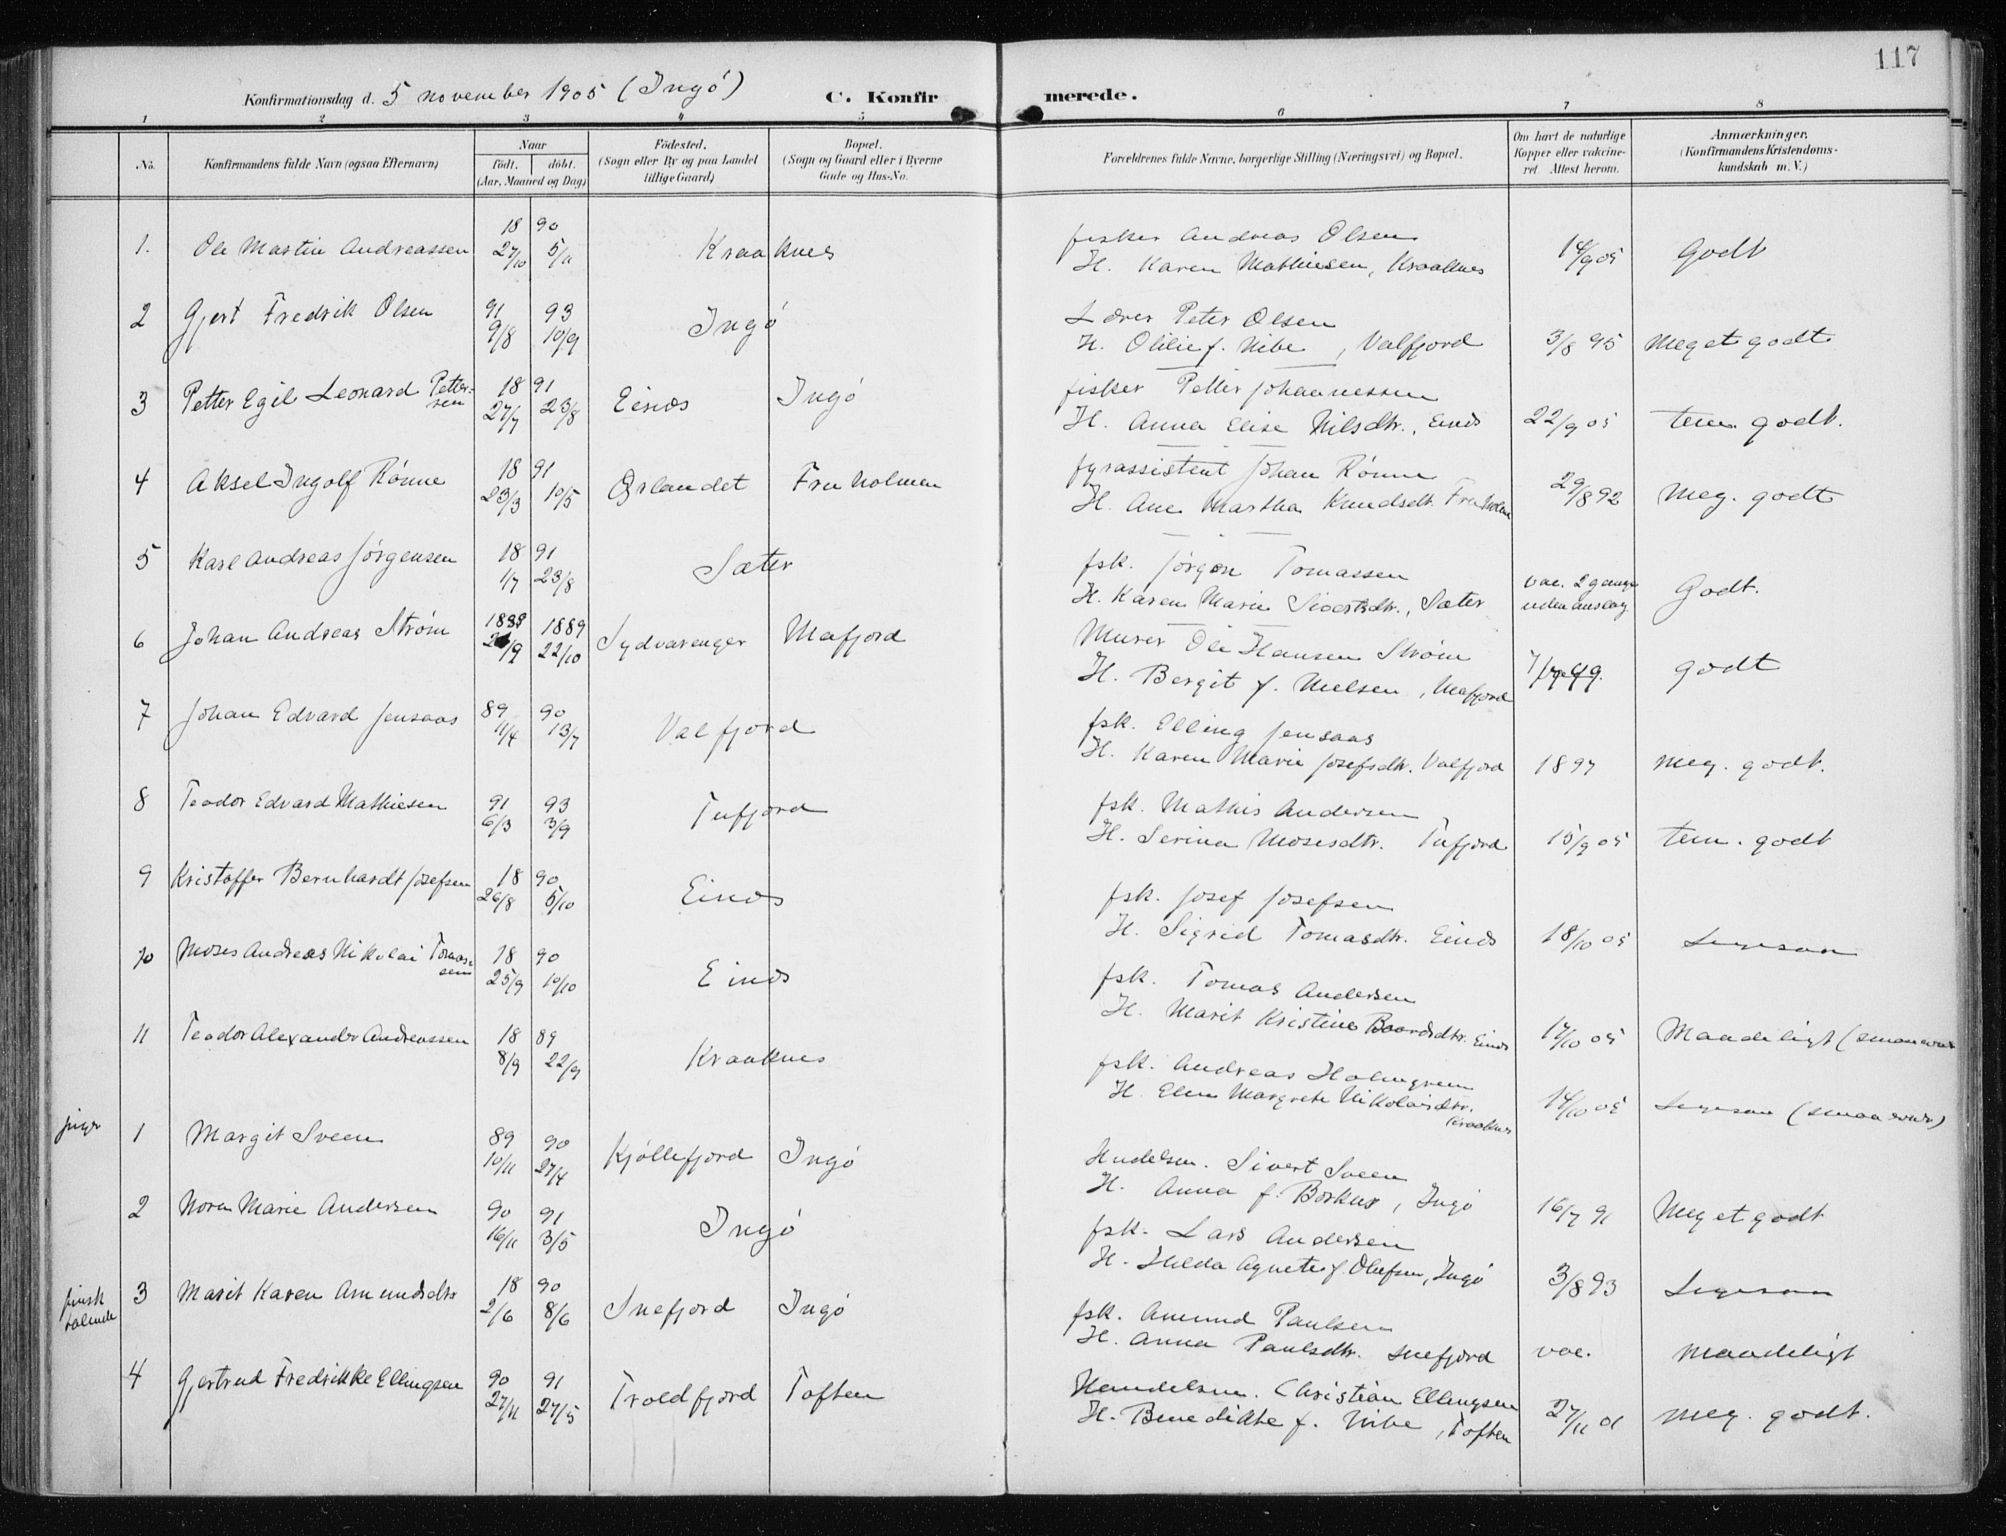 117
Konfirmationsdag d. 5 november 1905 (Ingö) C. Konfirmerede.
1 2 3 4 5 6 7 8
No. Konfirmandens fulde Navn (ogsaa Efternavn) Naar födt. döbt. (Aar, Maaned og Dag) Födested. (Sogn eller By og paa Landet tillige Gaard) Bopæl. (Sogn og Gaard eller i Byerne Gade og Hus-No. Forældrenes fulde Navne, borgerlige Stilling (Næringsvei) og Bopæl. Om havt de naturlige Kopper eller vakcineret Attest herom. Anmærkninger. (Konfirmandens Kristendomskundskab m. V.)
1. Ole Martin Andreassen 18 90 27/10 5/11 Kraaknes fisker Andreas Olsen
H. Karen Mathiesen, Kraaknes 14/9 05 Godt
2 Gjert Fredrik Olsen 91 9/8 93 10/9 Ingö Lærer Peter Olsen
H. Olilie f. Nibe, Valfjord 3/8 95 Meget godt
3 Petter Egil Leonard Pettersen 18 91 27/7 23/8 Einæs Ingö fisker Petter Johannessen
H. Anna Elise Nilsdtr., Einæs 22/9 05 tem. godt.
4 Aksel Ingolf Rönne 18 91 23/3 10/5 Örlandet Fruholmen fyrassistent Johan Rönne
H. Ane Martha Knudsdtr. Fruholmen 29/8 92 Meg. godt
5 Karl Andreas Jörgensen 18 91 1/7 23/8 Sæter fsk. Jörgen Tomassen
H. Karen Marie Sivertsdtr., Sæter vac. 2 gange uden anslag Godt.
6 Johan Andreas Ström 1888 /9 1889 22/10 Sydvaranger Mafjord Murer Ole Hansen Ström
H. Bergit f. Nielsen, Mafjord godt
7 Johan Edvard Jensaas 89 11/4 90 13/7 Valfjord fsk. Elling Jensaas
H. Karen Marie Josefsdtr. Valfjord 1897 Meg. godt.
8 Teodor Edvard Mathiesen 91 6/3 93 3/9 Tufjord fsk. Mathis Andersen
H. Serina Mosesdtr. Tufjord 15/9 05 tem. godt
9 Kristoffer Bernhardt Josefsen 18 90 26/8 5/10 Einæs fsk. Josef Josefsen
H. Sigrid Tomasdtr. Einæs 18/10 05 Ligesaa
10 Moses Andreas Nikolai Tomassen 18 90 25/9 10/10 Einæs fsk. Tomas Andersen
H. Marit Kristine Baardsdtr. Einæs 17/10 05 Maadeligt (smaa evner
11 Teodor Alexander Andreassen 18 89 8/9 22/9 Kraaknes fsk. Andreas Holmgreen
H. Elen Margrete Nikolaisdtr. Kraaknes 14/10 05 Ligesaa (smaa evner)
piger 1 Margit Sveen 89 10/11 90 27/4 Kjöllefjord Ingö Handelsm. Sivert Sveen
H. Anna f. Borkus, Ingö 16/7 91 Meget godt
2 Nora Marie Andersen 90 16/11 91 3/5 Ingö fsk. Lars Andersen
H. Hilda Agnete f. Olufsen, Ingö 3/8 93 Ligesaa
finsk talende 3 Marit Karen Amundsdtr 18 90 2/6 8/6 Snefjord Ingö fsk. Amund Paulsen
H. Anna Paulsdtr. Snefjord vac. Maadeligt
4 Gjertrud Fredrikke Ellingsen 90 27/11 91 27/5 Troldfjord Toften Handelsm. Christian Ellingsen
H. Benedikte f. Nibe, Toften 27/11 01 Meg. godt.